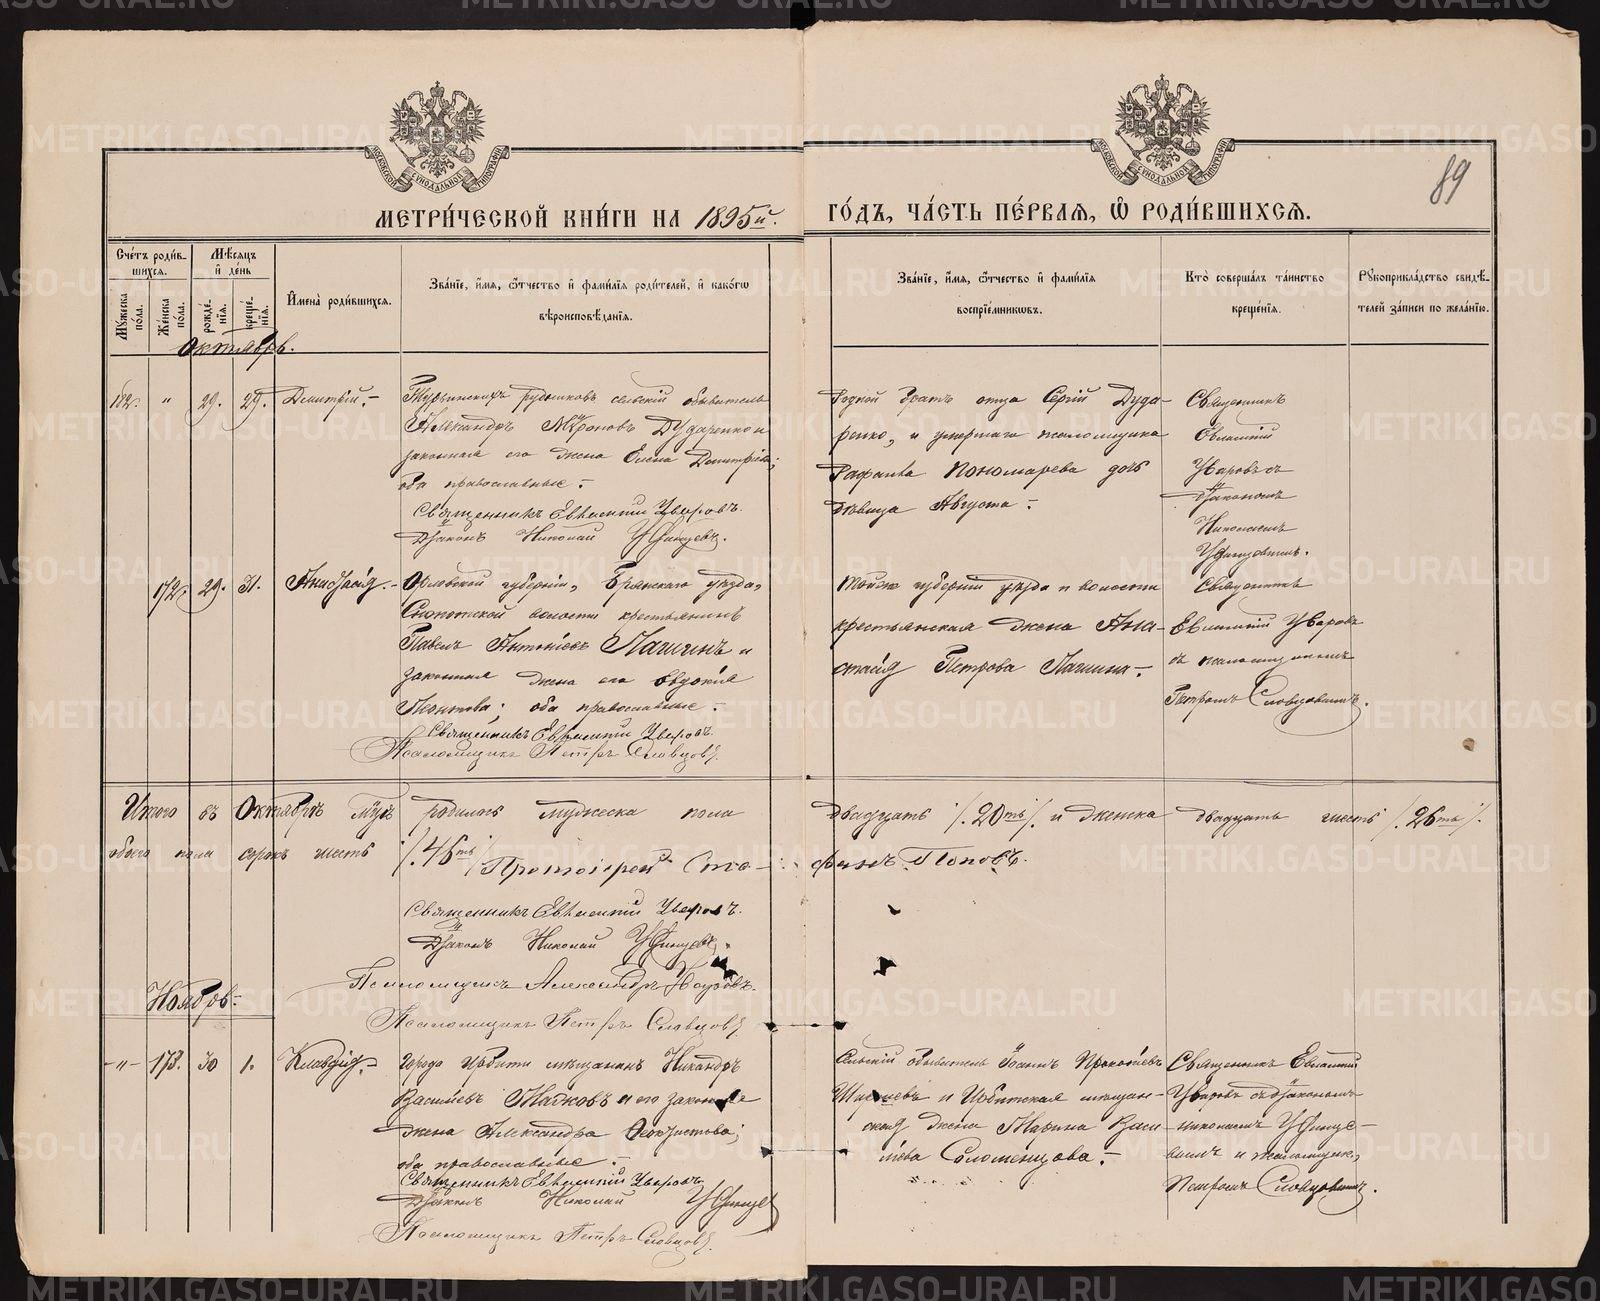 89
МЕТРИ́ЧЕСКОЙ КНИ́ГИ НА 1895й. ГО́ДЪ, ЧА́СТЬ ПЕ́РВАЯ, Ѿ РОДИ́ВШИХСЯ.
Сче́тъ роди́в-шихся.
Му́жеска по́ла.
Же́нска по́ла.
Мѣ́сяцъ и҆ де́нь
рожде́-нїя.
креще́-нїя.
И҆мена̀ роди́вшихся.
Зва́нїе, и҆́мя, ѻ҆́тчество и҆ фами́лїя роди́телей, и҆ како́гѡ
вѣроисповѣ́данїя.
Зва́нїе, и҆́мя, ѻ҆́тчество и҆ фами́лїя
воспрїе́мникѡвъ.
Кто̀ соверша́лъ та́инство
креще́нїя.
Рꙋкоприкла́дство свидѣ́-
телей за́писи по жела́нїю.
Октябрь.
182. " 29. 29. Димитрій.
Турьинскихъ рудниковъ сельскій обыватель
Александръ Мѵроновъ Дударенко и
законная его жена Елена Димитріева;
оба православные.
Священникъ Евѳимій Уваровъ.
Діаконъ Николай
Родной братъ отца Сергій Дуда-
ренко, и умершаго псаломщика
Пономарева дочь
дѣвица Августа.
Священникъ
Евѳимій
Уваровъ съ
Діакономъ
Николаемъ
172. 29. 31. Анастасія.
Орловской губерніи, Брянскаго уѣзда,
волости крестьянинъ
Павелъ Антоніевъ Пашинъ и
законная жена его Евдокія
Леонтова; оба православные.
Священникъ Евѳимій Уваровъ.
Псаломщикъ Петръ Словцовъ.
Тойже губерніи уѣзда и волости
крестьянская жена Ана-
стасія Петрова Пашина.
Священникъ
Евѳимій Уваровъ
съ псаломщикомъ
Петромъ Словцовымъ.
Итого въ Октябрѣ м-цѣ родилось мужеска пола двадцать /.20ть/. и женска двадцать шесть /.26ть/.
обоего пола сорокъ шесть /.46ть/. Протоіерей Сте-фанъ Поповъ.
Священникъ Евѳимій Уваровъ.
Діаконъ Николай
Псаломщикъ Александръ
Псаломщикъ Петръ Словцовъ
Ноябрь.
-"- 173. 30 1. Клавдія.
Города Ирбити мѣщанинъ Никандръ
Василіевъ и его законная
жена Александра Ѳеоктистова;
оба православные.
Священникъ Евѳимій Уваровъ
Діаконъ Николай
Псаломщикъ Петръ Словцовъ.
Сельскій обыватель Іоаннъ Прокопіевъ
и Ирбитская мѣщан-
ская жена Марина Васи-
ліева Соломенцова.
Священникъ Евѳимій
Уваровъ съ діакономъ
Николаемъ
и псаломщик.
Петромъ Словцовымъ.
METRIKI.GASO-URAL.RU